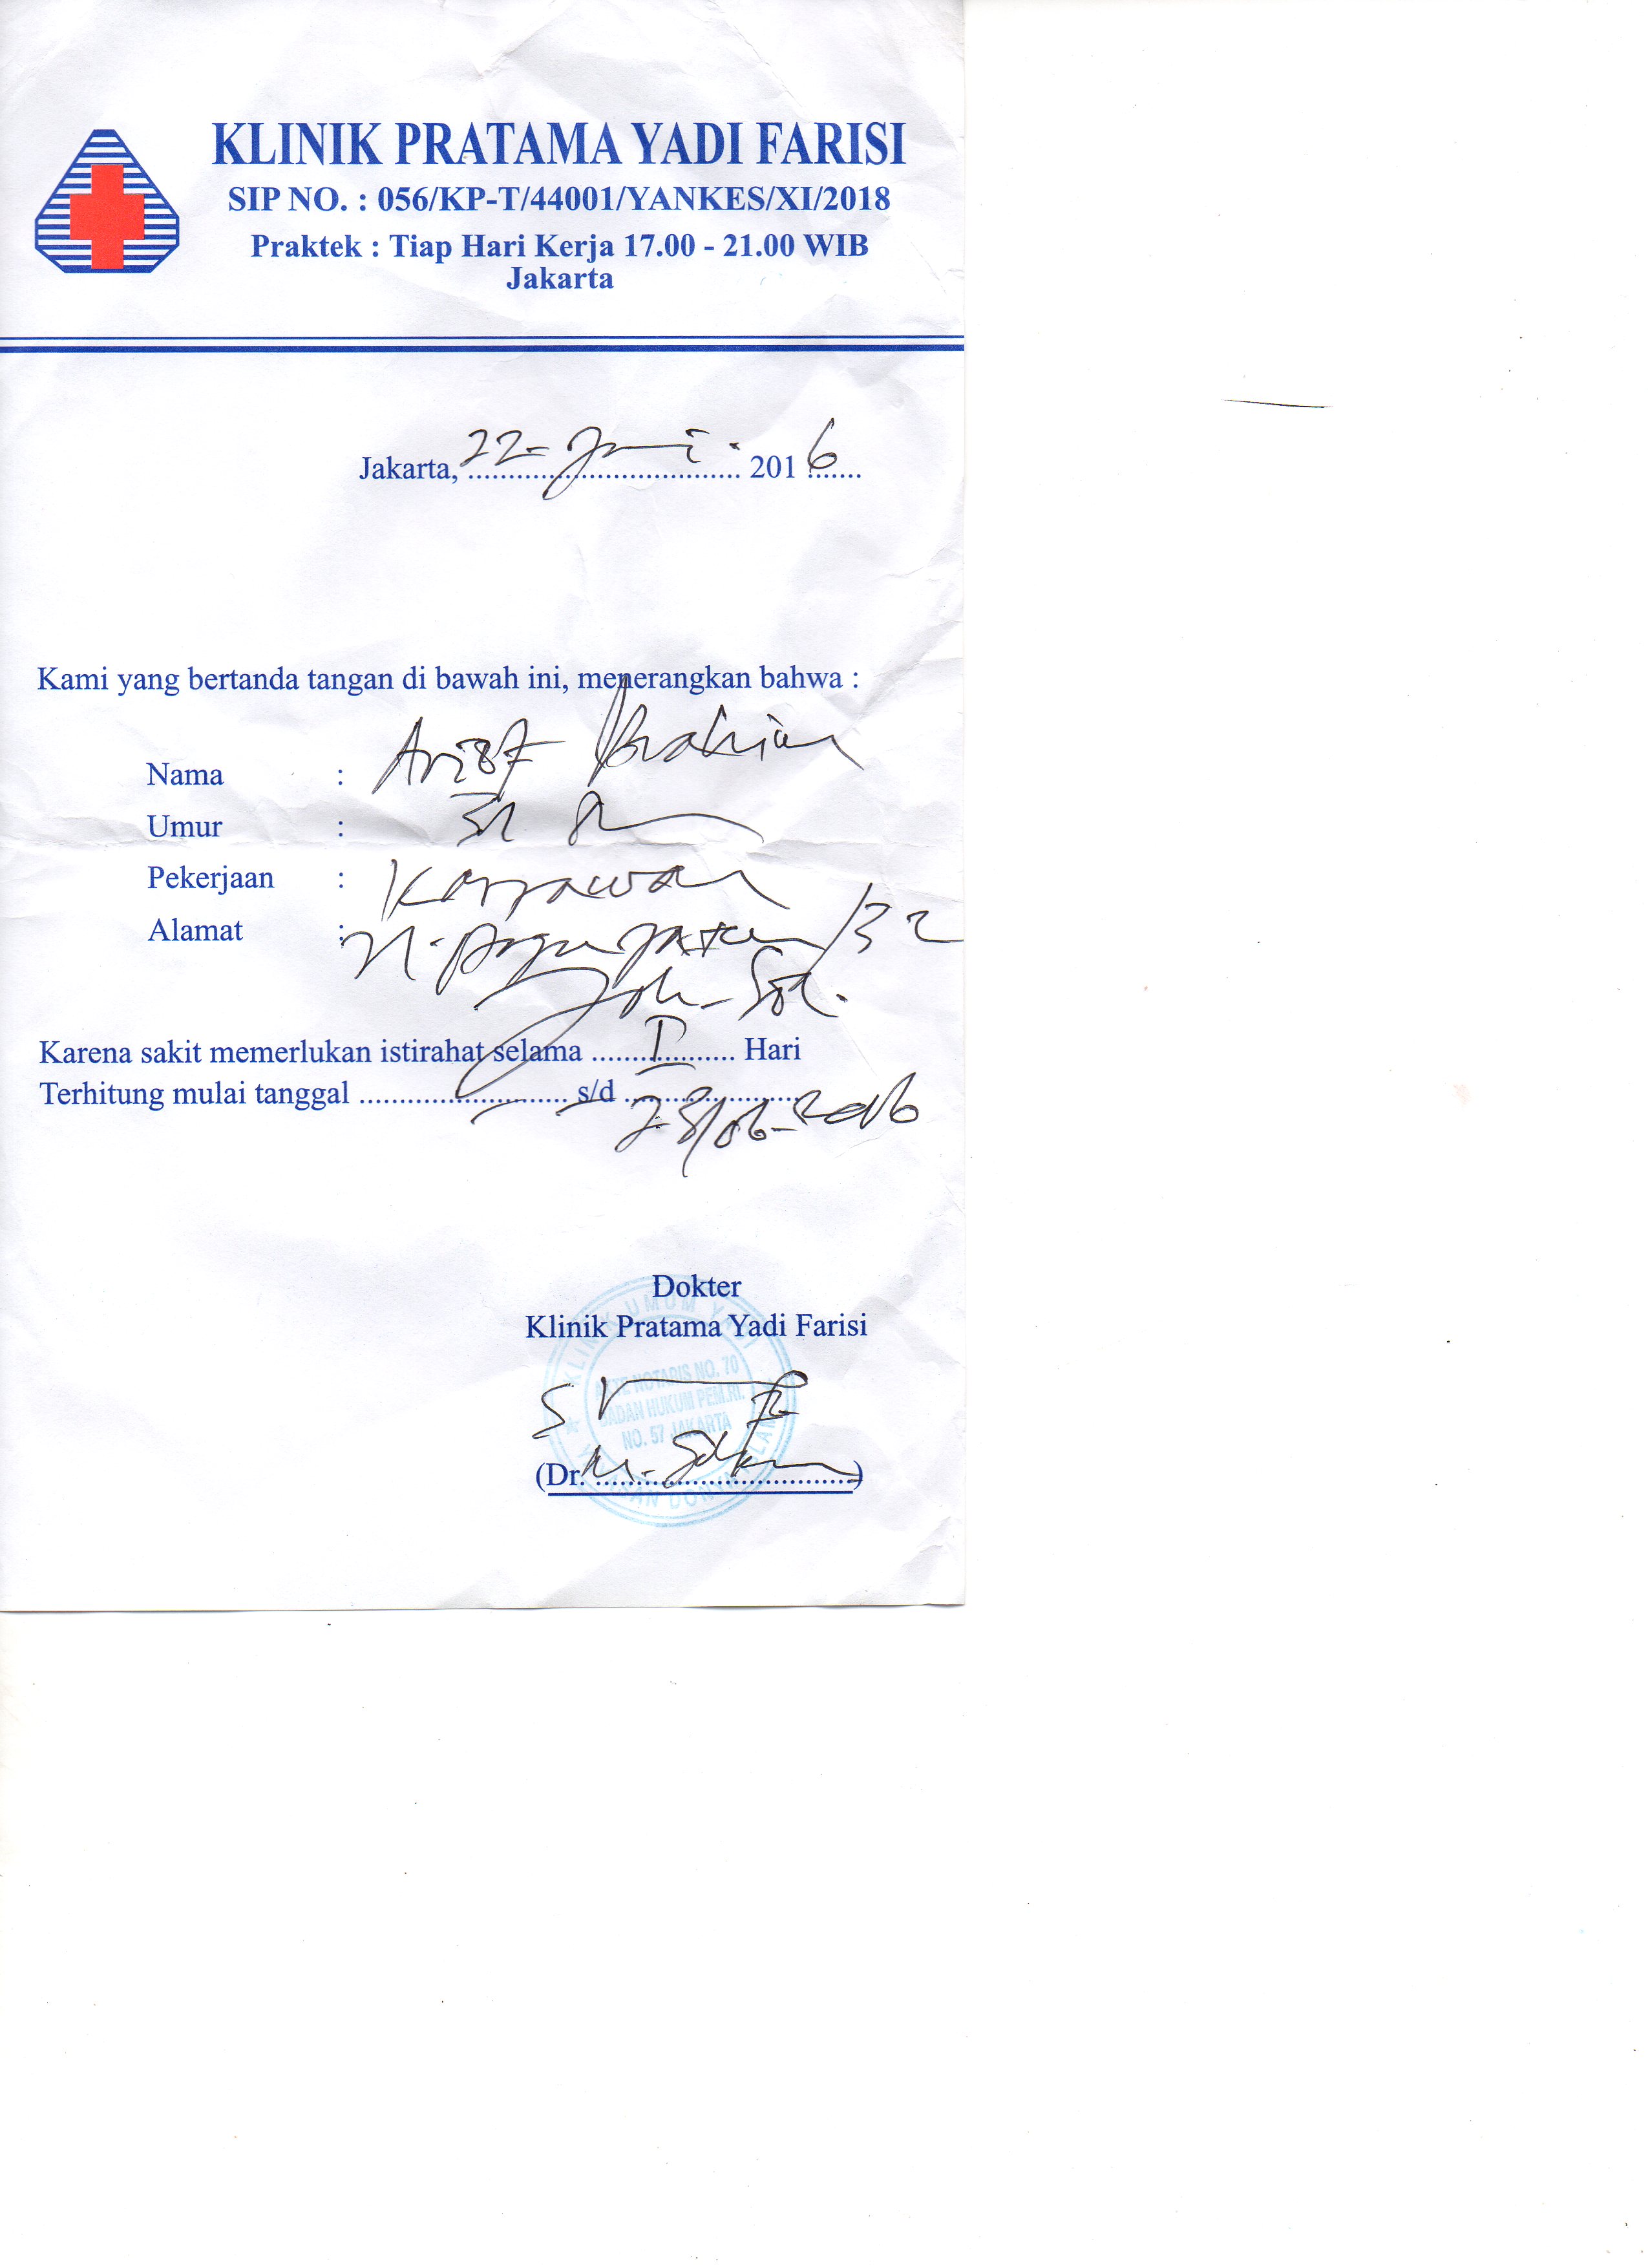 KLINIK PRATAMA YADI FARISI
SIP NO. : 056/KP-T/44001/YANKES/XI/2018
Praktek : Tiap Hari Kerja 17.00 - 21.00 WIB
Jakarta
Jakarta, 22- Juni - 2016
Kami yang bertanda tangan di bawah ini, menerangkan bahwa :
Nama : Arief Ibrahim
Umur :
Pekerjaan : Karyawan
Alamat : /32
Karena sakit memerlukan istirahat selama I Hari
Terhitung mulai tanggal s/d
Dokter
Klinik Pratama Yadi Farisi
KLINIK UMUM YADI
AKTE NOTARIS NO. 70
BADAN HUKUM PEM.RI.
NO. 57 JAKARTA
(Dr. )